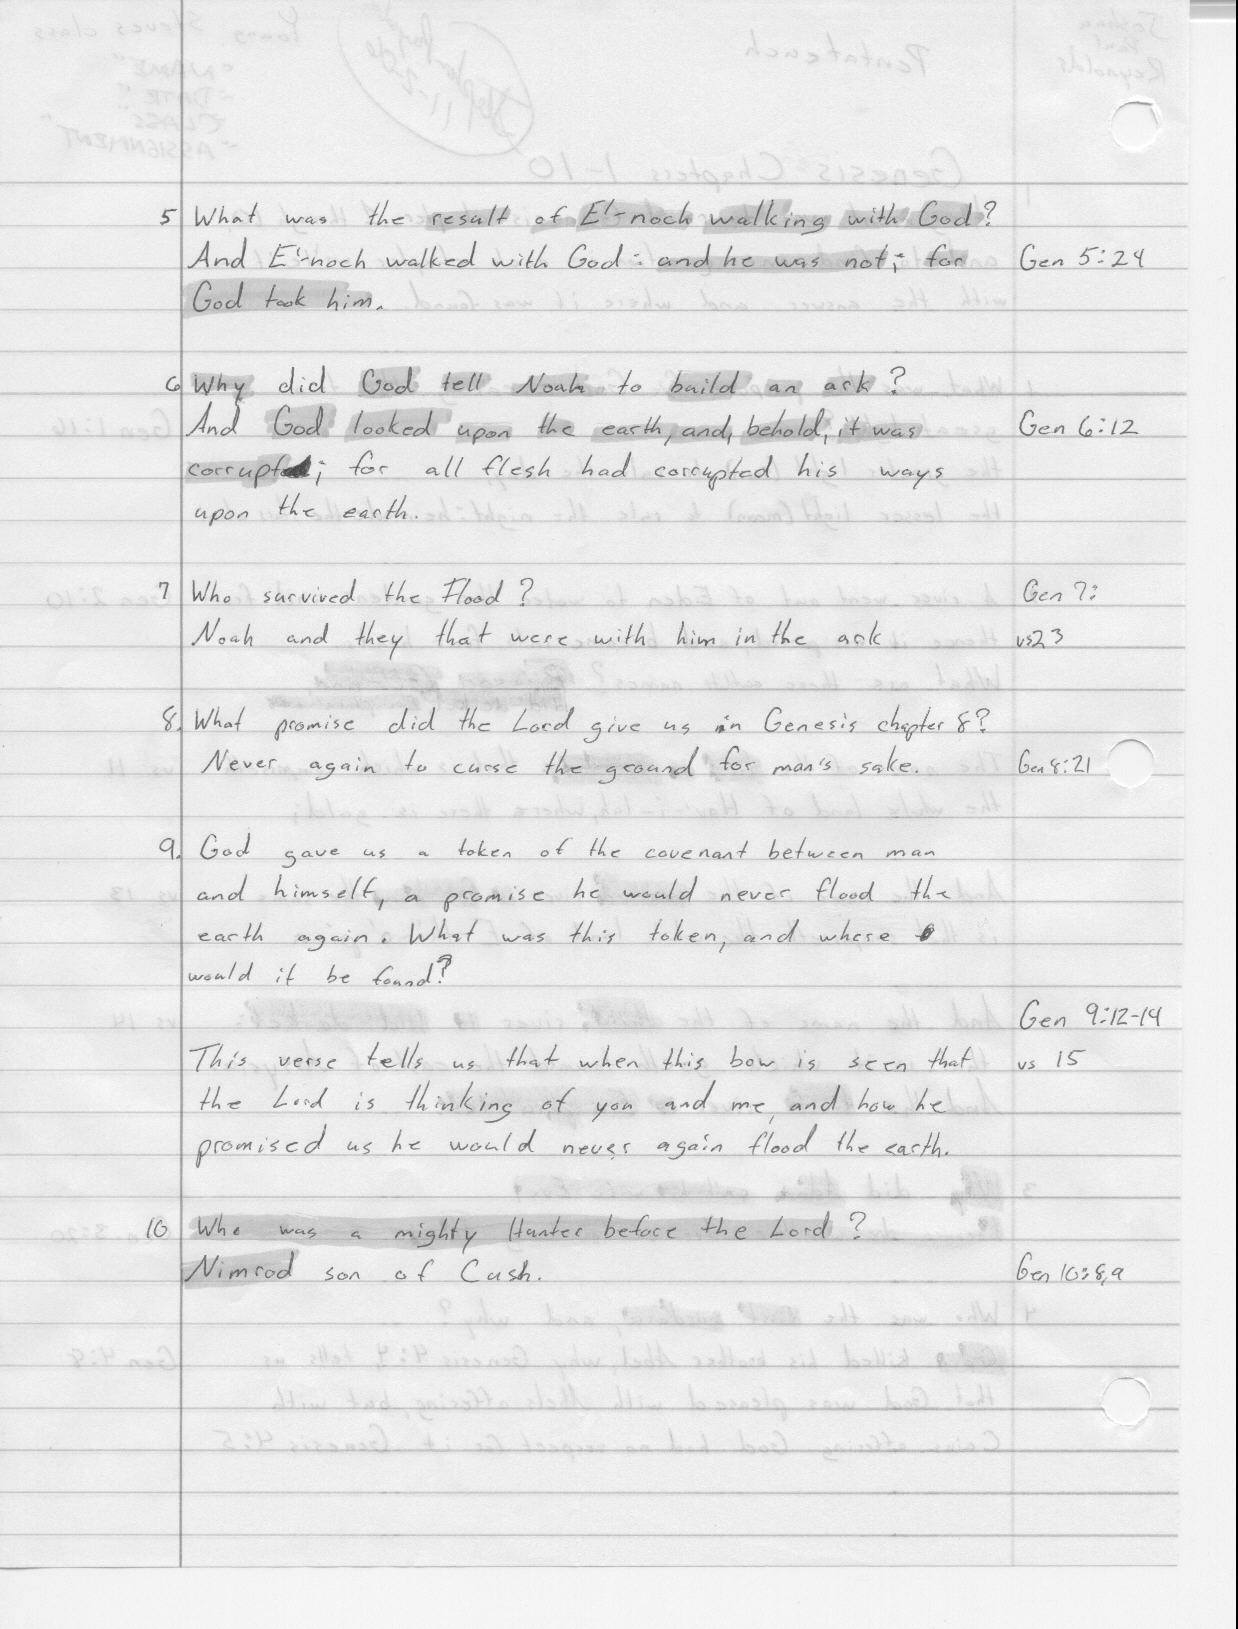 5 What was the result of E'-noch walking with God?
And E'-noch walked with God: and he was not; for Gen 5:24
God took him.
6 Why did God tell Noah to build an ark?
And God looked upon the earth, and, behold, it was Gen 6:12
corrupt; for all flesh had corrupted his ways
upon the earth.
7 Who survived the Flood? Gen 7:
Noah and they that were with him in the ark vs23
8. What promise did the Lord give us in Genesis chapter 8?
Never again to curse the ground for man's sake. Gen 8:21
9. God gave us a token of the covenant between man
and himself, a promise he would never flood the
earth again. What was this token, and where
would it be found?
Gen 9:12-14
This verse tells us that when this bow is seen that vs 15
the Lord is thinking of you and me, and how he
promised us he would never again flood the earth.
10 Who was a mighty Hunter before the Lord?
Nimrod son of Cush. Gen 10:8,9